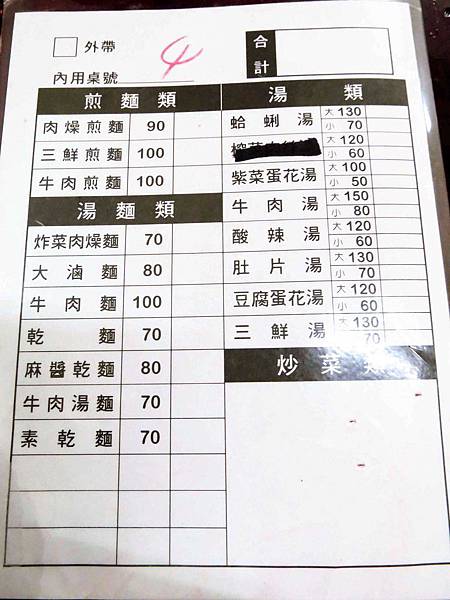 外帶
內用桌號 4
合計
煎麵類
肉燥煎麵 90
三鮮煎麵 100
牛肉煎麵 100
湯麵類
炸菜肉燥麵 70
大滷麵 80
牛肉麵 100
乾麵 70
麻醬乾麵 80
牛肉湯麵 70
素乾麵 70
湯類
蛤蜊湯 大 130
小 70
大 120
小 60
紫菜蛋花湯 大 100
小 50
牛肉湯 大 150
小 80
酸辣湯 大 120
小 60
肚片湯 大 130
小 70
豆腐蛋花湯 大 120
小 60
三鮮湯 大 130
小 70
炒菜類